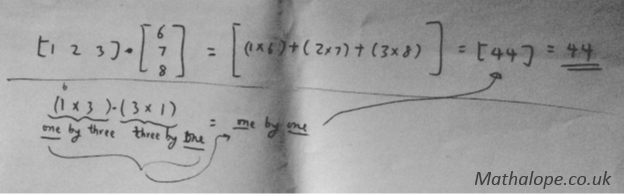 [1 2 3] • [6 7 8] = [(1x6)+(2x7)+(3x8)] = [44] = 44
(1 x 3) • (3 x 1)
one by three three by one = one by one
Mathalope.co.uk